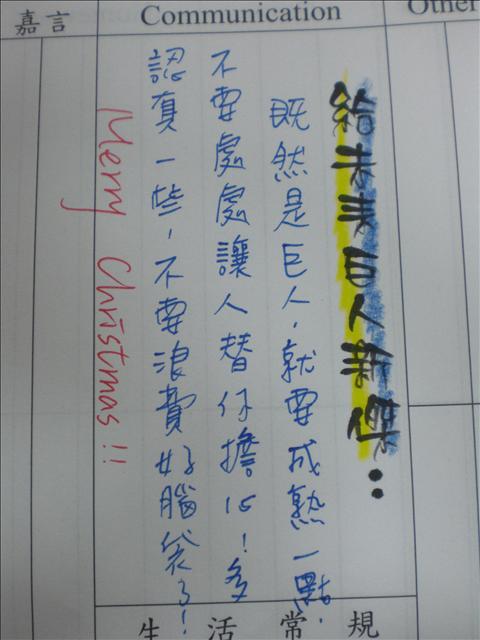 嘉言
Communication
Other
給未來巨人新傑:
既然是巨人,就要成熟一點,
不要處處讓人替你擔心!多
認真一些,不要浪費好腦袋了!
Merry Christmas!!
生活常規